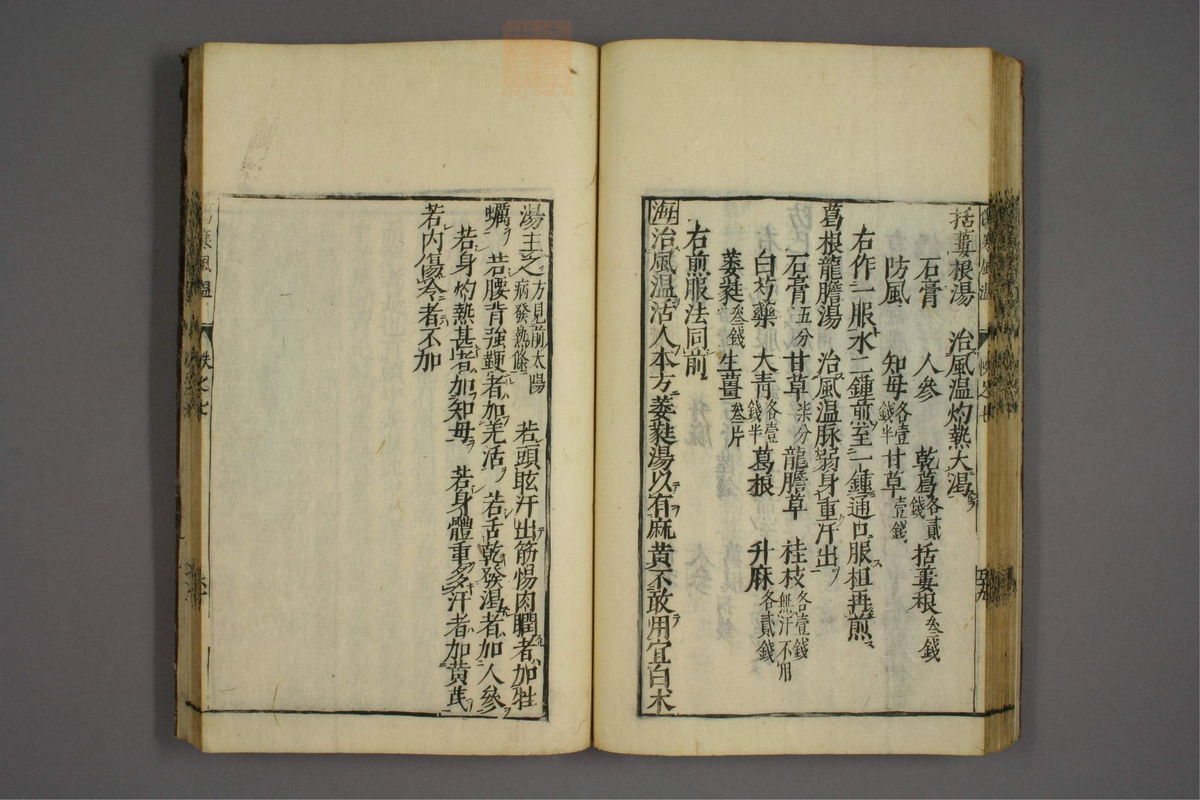 括蔞根湯　治風温灼熱大渇
石膏　人參　乾葛各貳錢　括蔞根叁錢
防風　知母各壹錢半　甘草壹錢
右作一服水二鍾煎至一鍾通口服柤再煎
葛根龍膽湯　治風温脉弱身重汗出
石膏五分　甘草柒分　龍膽草　桂枝各壹錢無汗不用
白芍藥　大青各壹錢半　葛根　升麻各貳錢
萎蕤叁錢　生薑叁片
右煎服法同前
海治風温活人本方萎蕤湯以有麻黄不敢用宜白朮
湯主之方見前太陽病發熱條　若頭眩汗出筋惕肉瞤者加牡
蠣　若腰背強鞕者加羌活　若舌乾發渇者加人參
若身灼熱甚者加知母　若身體重多汗者加黄芪
若内傷冷者不加